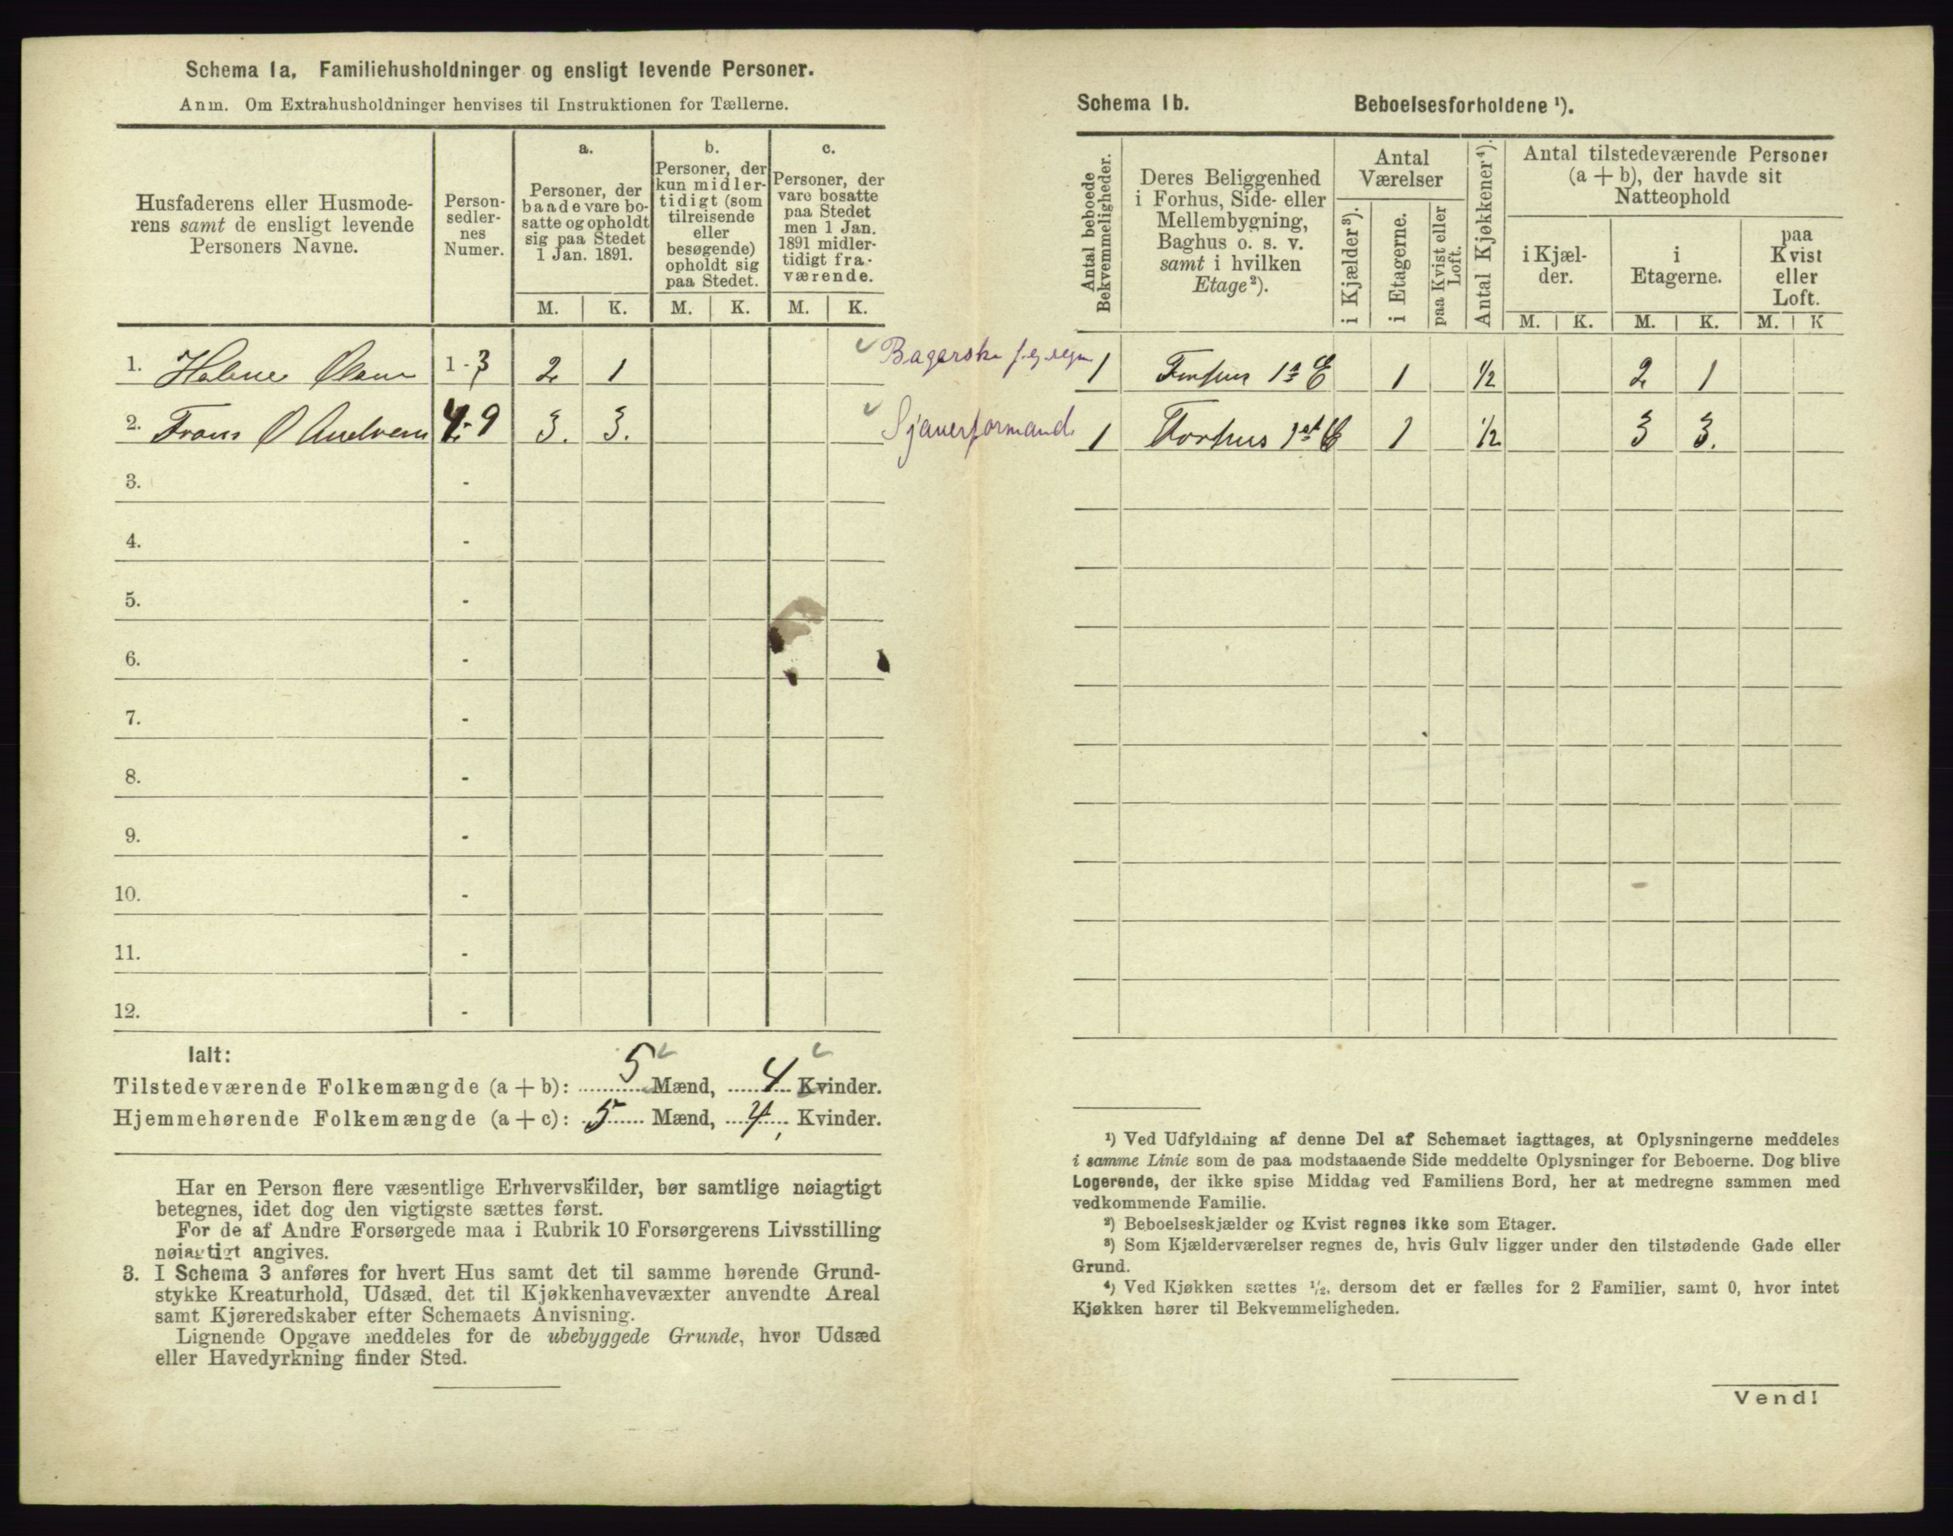 Schema 1a, Familiehusholdninger og ensligt levende Personer.
Anm. Om Extrahusholdninger henvises til Instruktionen for Tællerne.
Husfaderens eller Husmode-
rens samt de ensligt levende
Personers Navne.
Person-
sedler-
nes
Numer.
a.
Personer, der
baade vare bo-
satte og opholdt
sig paa Stedet
1 Jan. 1891.
b.
Personer, der
kun midler-
tidigt (som
tilreisende
eller
besøgende)
opholdt sig
paa Stedet.
c.
Personer, der
vare bosatte
paa Stedet
men 1 Jan.
1891 midler-
tidigt fra-
værende.
M. K. M. K. M. K.
1. Helene Olsen 1-3 2 1
2. Frans O Andersen 4-9 3. 3.
3. -
4. -
5. -
6. -
7. -
8. -
9. -
10. -
11. -
12. -
Ialt:
Tilstedeværende Folkemængde (a + b): 5 Mænd, 4 Kvinder.
Hjemmehørende Folkemængde (a + c): 5 Mænd, 4 Kvinder.
Har en Person flere væsentlige Erhvervskilder, bør samtlige nøiagtigt
betegnes, idet dog den vigtigste sættes først.
For de af Andre Forsørgede maa i Rubrik 10 Forsørgerens Livsstilling
nøiagtigt angives.
3. I Schema 3 anføres for hvert Hus samt det til samme hørende Grund-
stykke Kreaturhold, Udsæd, det til Kjøkkenhavevæxter anvendte Areal
samt Kjøreredskaber efter Schemaets Anvisning.
Lignende Opgave meddeles for de ubebyggede Grunde, hvor Udsæd
eller Havedyrkning finder Sted.
Schema 1b. Beboelsesforholdene ¹).
Antal beboede
Bekvemmeligheder.
Deres Beliggenhed
i Forhus, Side- eller
Mellembygning,
Baghus o. s. v.
samt i hvilken
Etage²).
Antal
Værelser
i Kjælder³).
i Etagerne.
paa Kvist eller
Loft.
Antal Kjøkkener⁴).
Antal tilstedeværende Personer
(a + b), der havde sit
Natteophold
i Kjæl-
der.
i
Etagerne.
paa
Kvist
eller
Loft.
M. K. M. K. M. K
Bagerske 1 Forhus 1ste E 1 ½ 2 1
Sjauerformand 1 Forhus 1st E 1 ½ 3 3.
¹) Ved Udfyldning af denne Del af Schemaet iagttages, at Oplysningerne meddeles
i samme Linie som de paa modstaaende Side meddelte Oplysninger for Beboerne. Dog blive
Logerende, der ikke spise Middag ved Familiens Bord, her at medregne sammen med
vedkommende Familie.
²) Beboelseskjælder og Kvist regnes ikke som Etager.
³) Som Kjælderværelser regnes de, hvis Gulv ligger under den tilstødende Gade eller
Grund.
⁴) Ved Kjøkken sættes ½, dersom det er fælles for 2 Familier, samt 0, hvor intet
Kjøkken hører til Bekvemmeligheden.
Vend!